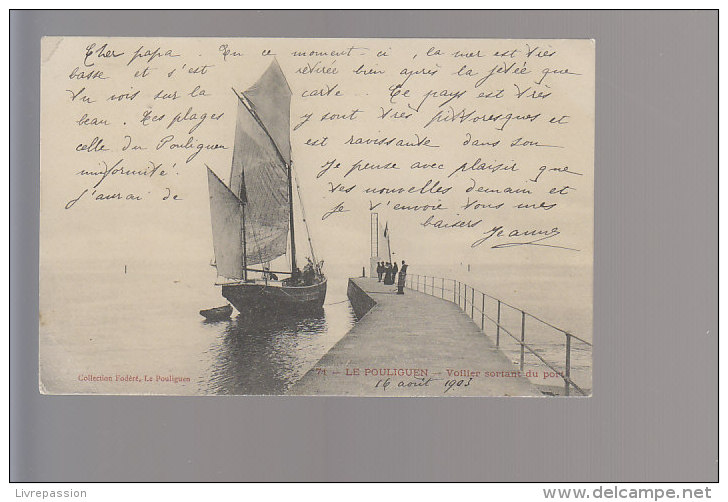 Cher papa. En ce moment-ci, la mer est très
basse et s'est retirée bien après la jetée que
tu vois sur la carte. Ce pays est très
beau. Les plages y sont très pittoresques et
celle du Pouliguen est ravissante dans son
uniformité. Je pense avec plaisir que
j'aurai de tes nouvelles demain et
je t'envoie tous mes
baisers
Jeanne
71 - LE POULIGUEN - Voilier sortant du port
Collection Fodéré, Le Pouliguen
16 août 1903
Livrepassion
www.delcampe.net